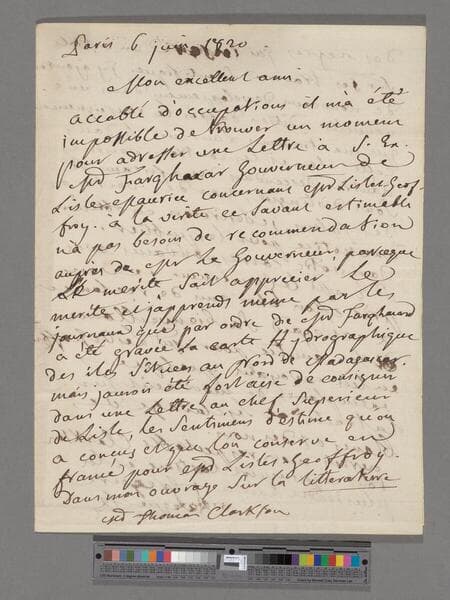 Paris 6 juin 1820
Mon excellent ami
accablé d'occupations il m'a été
impossible de trouver un moment
pour adresser une Lettre a S. Ex.
Farghaaar Gouverneur de
Lisle Maurice concernant Lislet-Geof-
froy. à la verité ce savant estimable
n'a pas besoin de recommendation
aupres de Le Gouverneur, parceque
Le merite sait apprecier Le
merite et j'apprends même par les
journaux que par ordre de Mr Farghaaar
a été gravée la carte Hydrographique
des iles situees au Nord de Madagascar
mais j'aurois été fort aise de consigner
dans une Lettre au chef Superieur
de Lisle, les Sentimens d'estime qu'on
a conçus et que l'on conserve en
france pour Lislet-Geoffroy.
Dans mon ouvrage sur la litterature
Thomas Clarkson